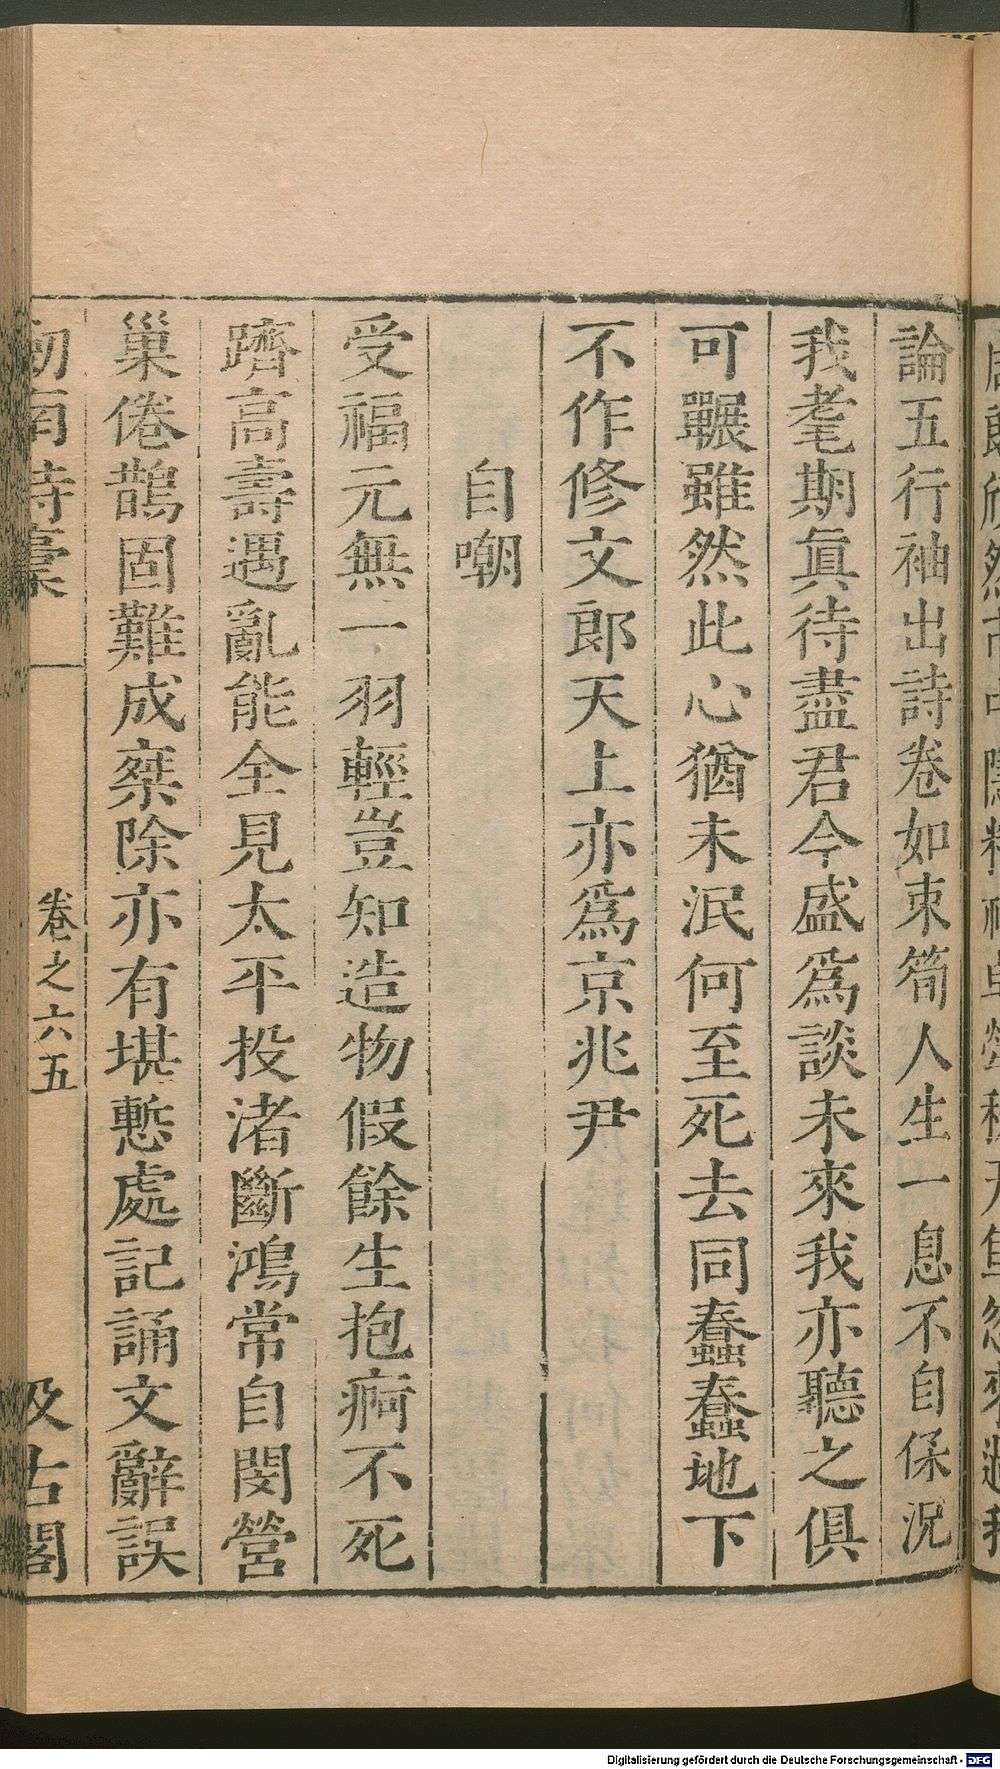 論五行袖出詩卷如束筍人生一息不自保況
我耄期眞待盡君今盛爲談未來我亦聽之俱
可囅雖然此心猶未泯何至死去同蠢蠢地下
不作修文郎天上亦爲京兆尹
自嘲
受福元無一羽輕豈知造物假餘生抱痾不死
躋高壽遇亂能全見太平投渚斷鴻常自閔營
巢倦鵲固難成桒除亦有堪慙處記誦文辭誤
南詩稾
卷之六五
汲古閣
Digitalisierung gefördert durch die Deutsche Forschungsgemeinschaft - DFG